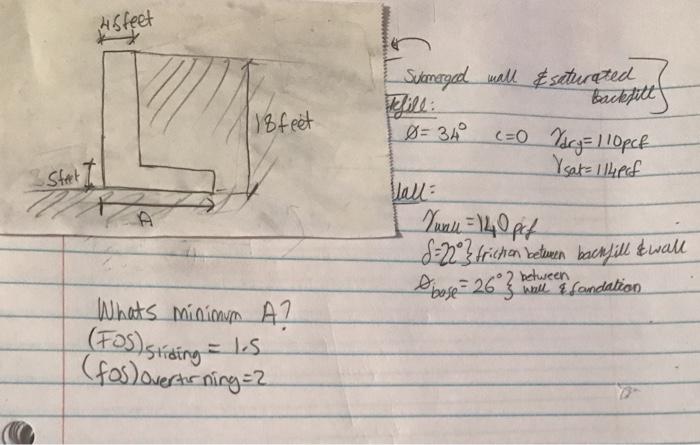 4.5 feet
Submerged wall & saturated
backfill
18 feet
Ø = 34° c=0 γdry = 110pcf
γsat = 114pcf
5 feet
A
Wall:
γwall = 140 pcf
δ=22°} friction between backfill & wall
θbase = 26°} between
wall & fandation
Whats minimum A?
(FOS)sliding = 1.5
(fos)overturning = 2